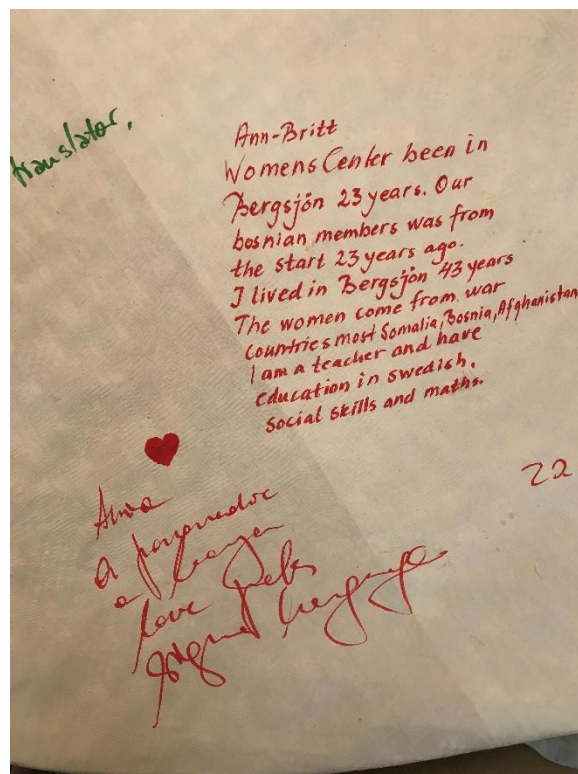 translator,
Ann-Britt
Womens Center been in
Bergsjön 23 years. Our
bosnian members was from
the start 23 years ago.
I lived in Bergsjön 43 years
The women come from war
Countries most Somalia, Bosnia, Afghanistan
I am a teacher and have
education in swedish,
social skills and maths.
22
a
a
love